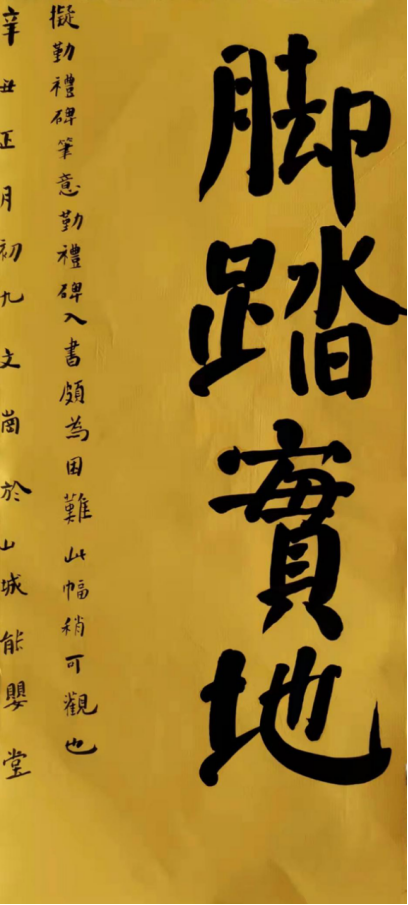 脚踏實地
擬勤禮碑筆意勤禮碑入書頗為困難此幅稍可觀也
辛丑正月初九文崗於山城能嬰堂